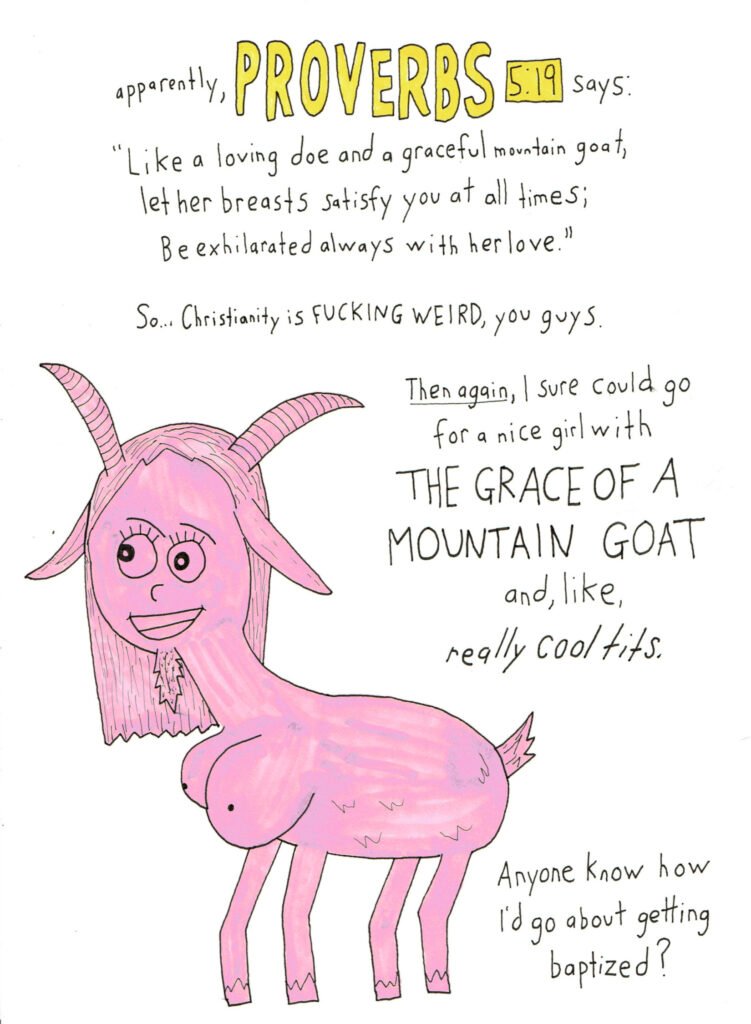 apparently, PROVERBS 5:19 says:
"Like a loving doe and a graceful mountain goat,
let her breasts satisfy you at all times;
Be exhilarated always with her love."
So... Christianity is FUCKING WEIRD, you guys.
Then again, I sure could go
for a nice girl with
THE GRACE OF A
MOUNTAIN GOAT
and, like,
really cool tits.
Anyone know how
I'd go about getting
baptized?